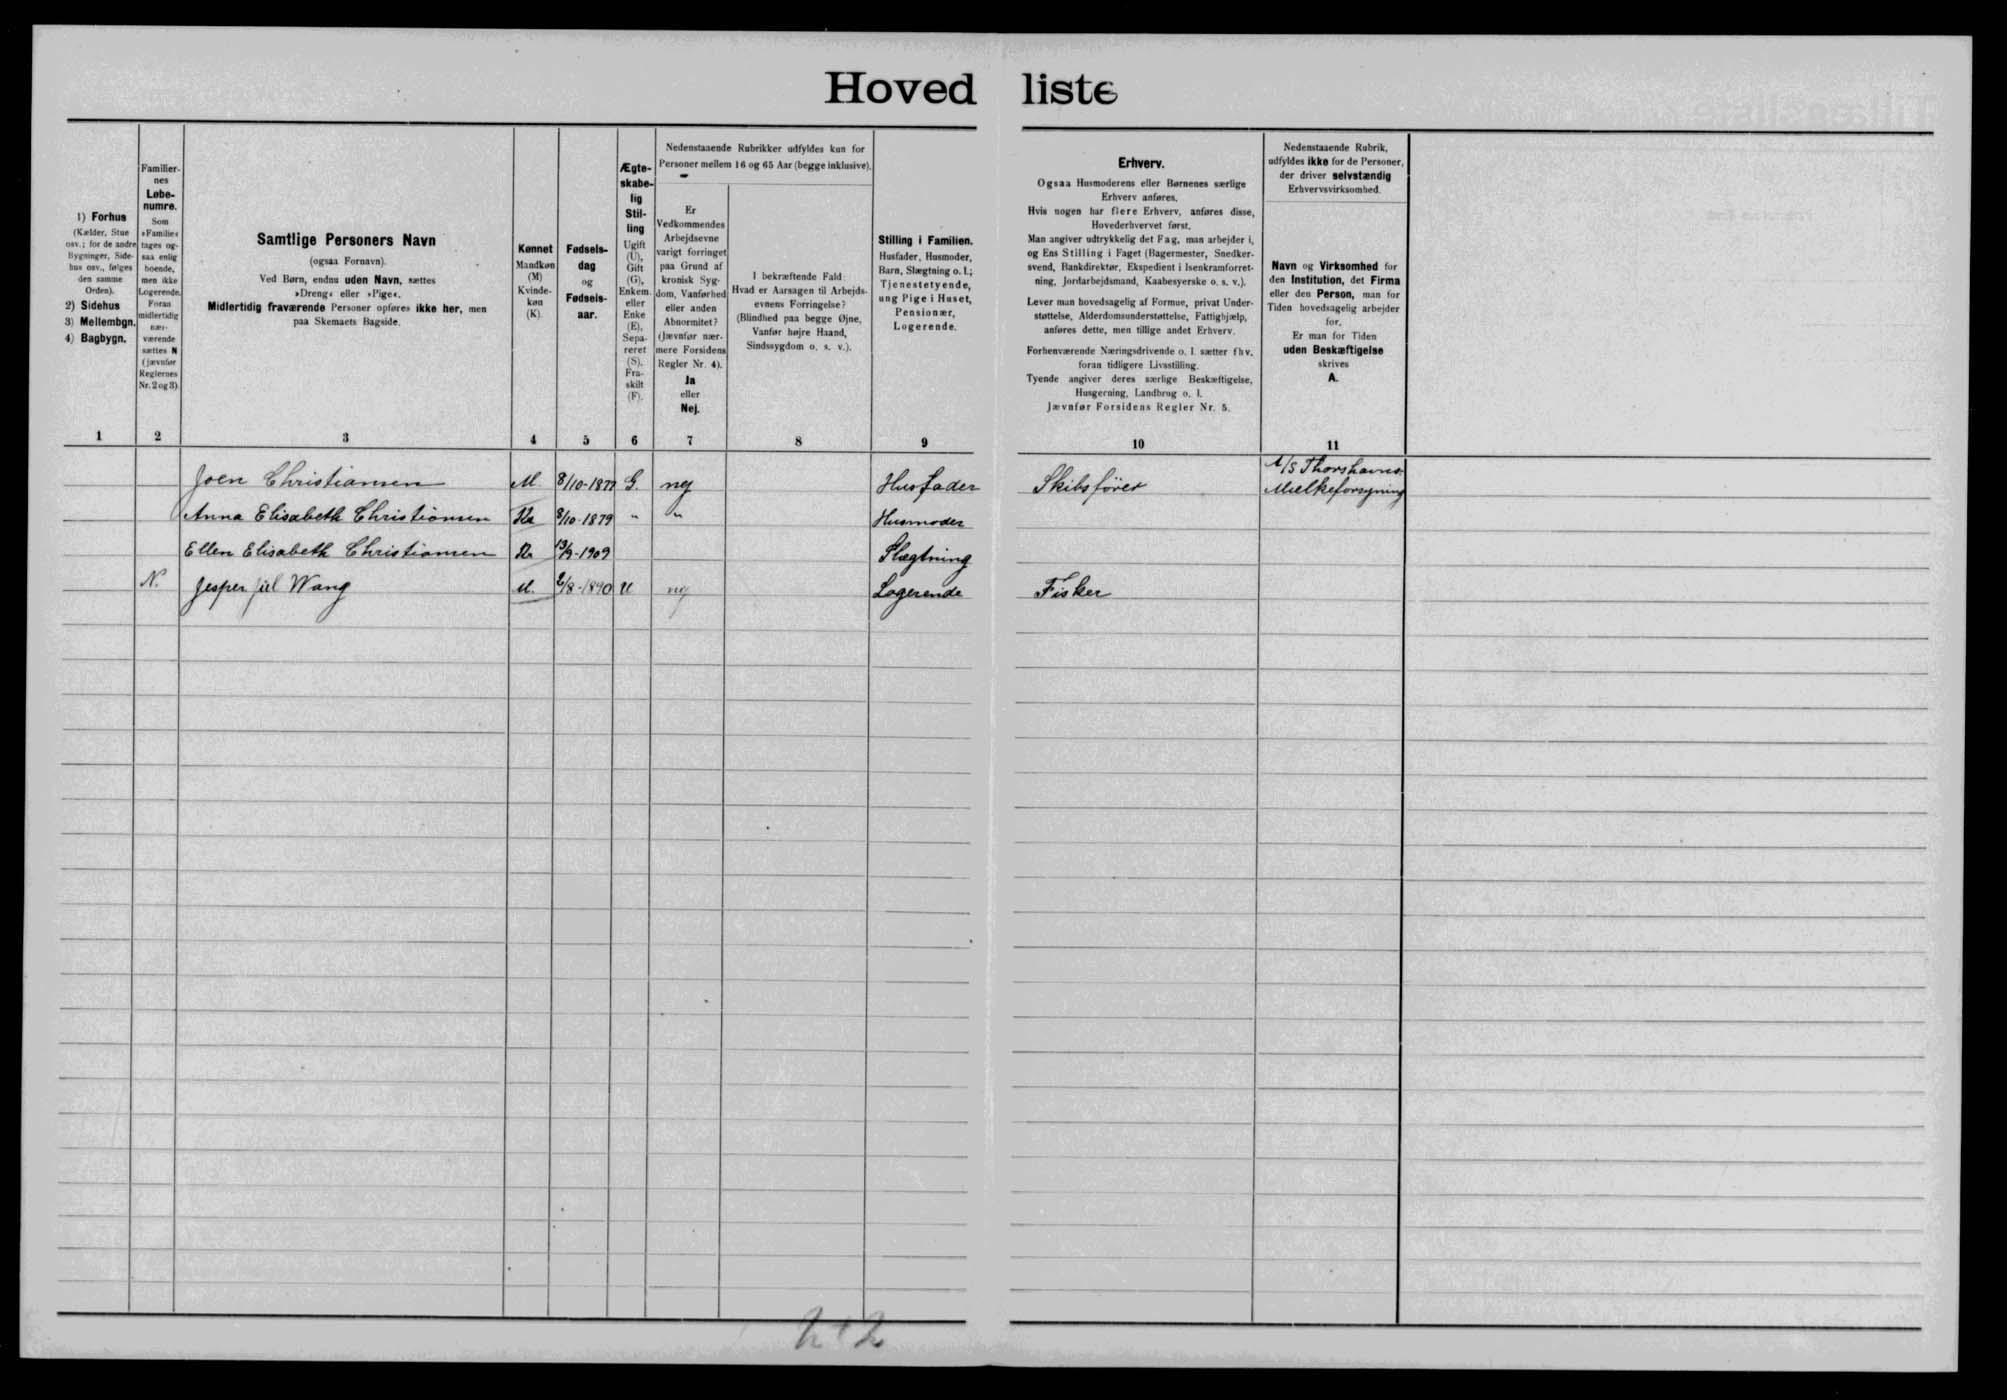 Hoved liste
1) Forhus
(Kælder, Stue
osv.; for de andre
Bygninger, Side-
hus osv., følges
den samme
Orden).
2) Sidehus
3) Mellembgn.
4) Bagbygn.
1
Familier-
nes
Løbe-
numre.
Som
»Familie«
tages og-
saa enlig
boende,
men ikke
Logerende.
Foran
midlertidig
nær-
værende
sættes N
(jævnfør
Reglernes
Nr. 2 og 3).
2
Samtlige Personers Navn
(ogsaa Fornavn).
Ved Børn, endnu uden Navn, sættes
»Dreng« eller »Pige«.
Midlertidig fraværende Personer opføres ikke her, men
paa Skemaets Bagside.
3
Kønnet
Mandkøn
(M)
Kvinde-
køn
(K).
4
Fødsels-
dag
og
Fødsels-
aar.
5
Ægte-
skabe-
lig
Stil-
ling
Ugift
(U),
Gift
(G),
Enkem.
eller
Enke
(E),
Sepa-
reret
(S),
Fra-
skilt
(F).
6
Nedenstaaende Rubrikker udfyldes kun for
Personer mellem 16 og 65 Aar (begge inklusive).
Er
Vedkommendes
Arbejdsevne
varigt forringet
paa Grund af
kronisk Syg-
dom, Vanførhed
eller anden
Abnormitet?
(Jævnfør nær-
mere Forsidens
Regler Nr. 4).
Ja
eller
Nej.
7
I bekræftende Fald:
Hvad er Aarsagen til Arbejds-
evnens Forringelse?
(Blindhed paa begge Øjne,
Vanfør højre Haand,
Sindssygdom o. s. v.).
8
Stilling i Familien.
Husfader, Husmoder,
Barn, Slægtning o. l.;
Tjenestetyende,
ung Pige i Huset,
Pensionær,
Logerende.
9
Erhverv.
Ogsaa Husmoderens eller Børnenes særlige
Erhverv anføres.
Hvis nogen har flere Erhverv, anføres disse,
Hovederhvervet først.
Man angiver udtrykkelig det Fag, man arbejder i,
og Ens Stilling i Faget (Bagermester, Snedker-
svend, Bankdirektør, Ekspedient i Isenkramforret-
ning, Jordarbejdsmand, Kaabesyerske o. s. v.).
Lever man hovedsagelig af Formue, privat Under-
støttelse, Alderdomsunderstøttelse, Fattighjælp,
anføres dette, men tillige andet Erhverv.
Forhenværende Næringsdrivende o. l. sætter fhv.
foran tidligere Livsstilling.
Tyende angiver deres særlige Beskæftigelse,
Husgerning, Landbrug o. l.
Jævnfør Forsidens Regler Nr. 5.
10
Nedenstaaende Rubrik,
udfyldes ikke for de Personer,
der driver selvstændig
Erhvervsvirksomhed.
Navn og Virksomhed for
den Institution, det Firma
eller den Person, man for
Tiden hovedsagelig arbejder
for.
Er man for Tiden
uden Beskæftigelse
skrives
A.
11
Joen Christiansen M 8/10-187 G. nej Husfader Skibsfører A/S Thorshavns Mælkeforsyning
Anna Elisabeth Christiansen Kv 8/10-1879 " " Husmoder
Ellen Elisabeth Christiansen Kv 13/9-1909 Slægtning
N. Jesper Wang M. 2/8-1890 U nej Logerende Fisker
2+2